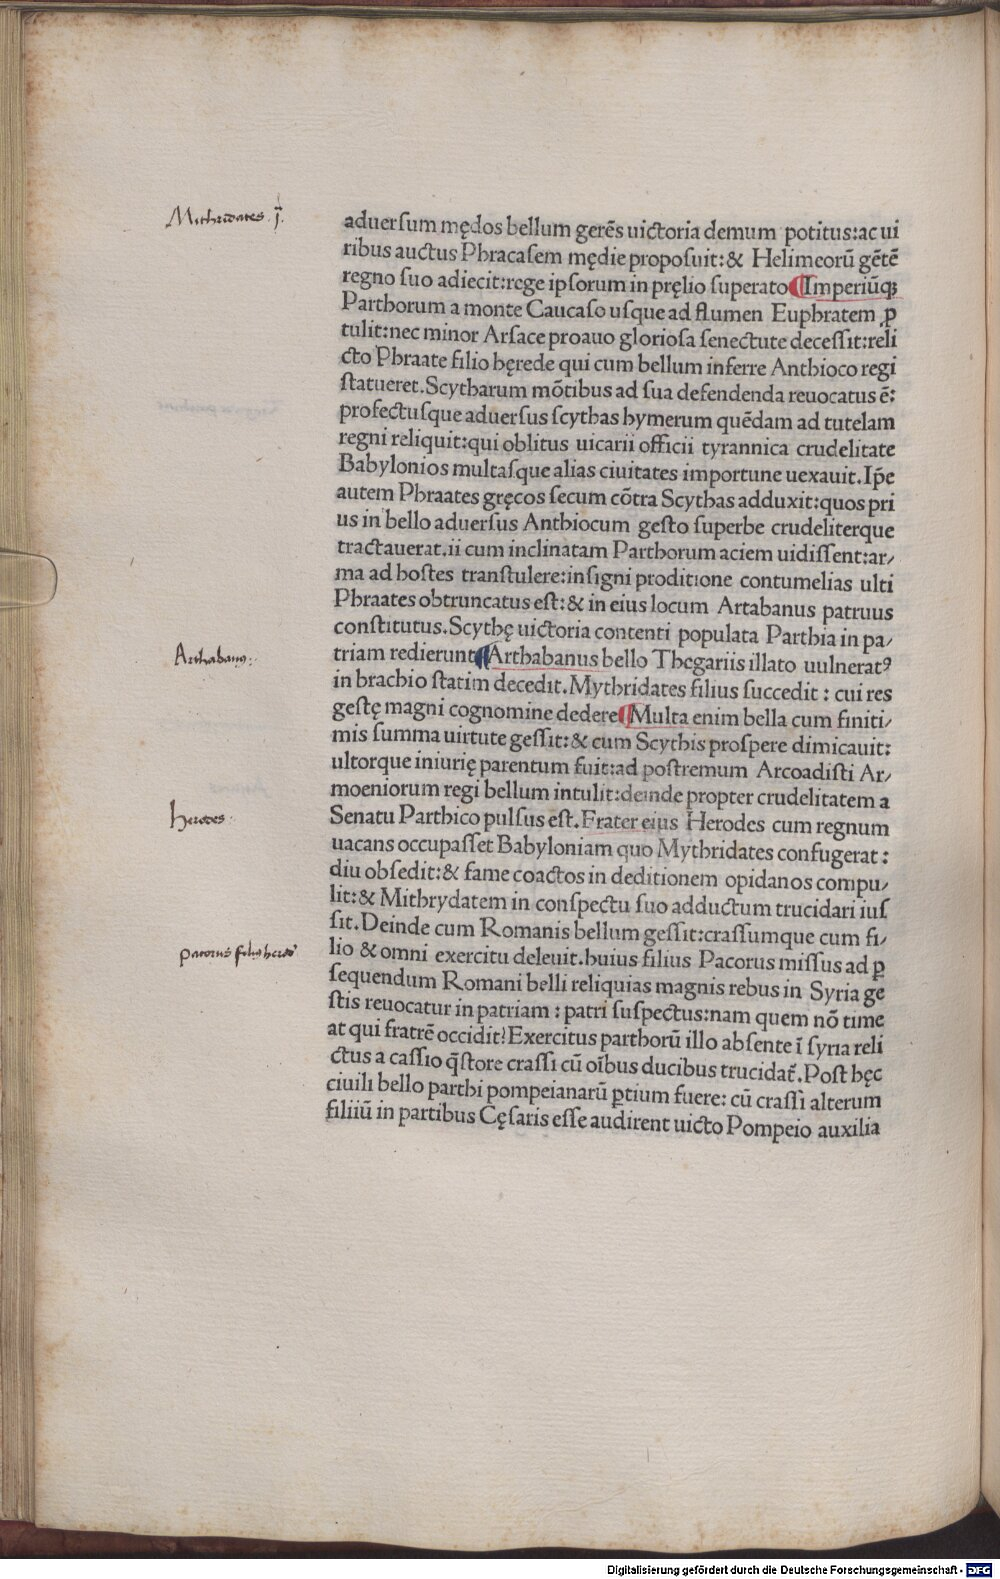 Mithridates .j.
aduersum mędos bellum gerēs uictoria demum potitus:ac ui
ribus auctus Phracasem mędie proposuit:& Helimeorū gētē
regno suo adiecit:rege ipsorum in pręlio superato Imperiūq;
Parthorum a monte Caucaso usque ad flumen Euphratem ꝓ
tulit:nec minor Arsace proauo gloriosa senectute decessit:reli
cto Phraate filio hęrede qui cum bellum inferre Anthioco regi
statueret.Scytharum mōtibus ad sua defendenda reuocatus ē:
profectusque aduersus scythas hymerum quēdam ad tutelam
regni reliquit:qui oblitus uicarii officii tyrannica crudelitate
Babylonios multasque alias ciuitates importune uexauit.Ip̄e
autem Phraates gręcos secum cōtra Scythas adduxit:quos pri
us in bello aduersus Anthiocum gesto superbe crudeliterque
tractauerat.ii cum inclinatam Parthorum aciem uidissent:ar/
ma ad hostes transtulere:insigni proditione contumelias ulti
Phraates obtruncatus est:& in eius locum Artabanus patruus
constitutus.Scythę uictoria contenti populata Parthia in pa/
Arthabanus:
triam redierunt Arthabanus bello Thegariis illato uulneratꝰ
in brachio statim decedit.Mythridates filius succedit : cui res
gestę magni cognomine dedere Multa enim bella cum finiti/
mis summa uirtute gessit:& cum Scythis prospere dimicauit:
ultorque iniurię parentum fuit:ad postremum Arcoadisti Ar/
moeniorum regi bellum intulit:deinde propter crudelitatem a
herodes
Senatu Parthico pulsus est.Frater eius Herodes cum regnum
uacans occupasset Babyloniam quo Mythridates confugerat :
diu obsedit:& fame coactos in deditionem opidanos compu/
lit:& Mithrydatem in conspectu suo adductum trucidari ius
sit.Deinde cum Romanis bellum gessit:crassumque cum fi/
pacorus filius herod
lio & omni exercitu deleuit.huius filius Pacorus missus ad ꝑ
sequendum Romani belli reliquias magnis rebus in Syria ge
stis reuocatur in patriam : patri suspectus:nam quem nō time
at qui fratrē occidit?Exercitus parthorū illo absente ī syria reli
ctus a cassio q̄store crassi cū oībus ducibus trucidat̄.Post hęc
ciuili bello parthi pompeianarū ꝑtium fuere: cū crassi alterum
filiiū in partibus Cęsaris esse audirent uicto Pompeio auxilia
Digitalisierung gefördert durch die Deutsche Forschungsgemeinschaft - DFG